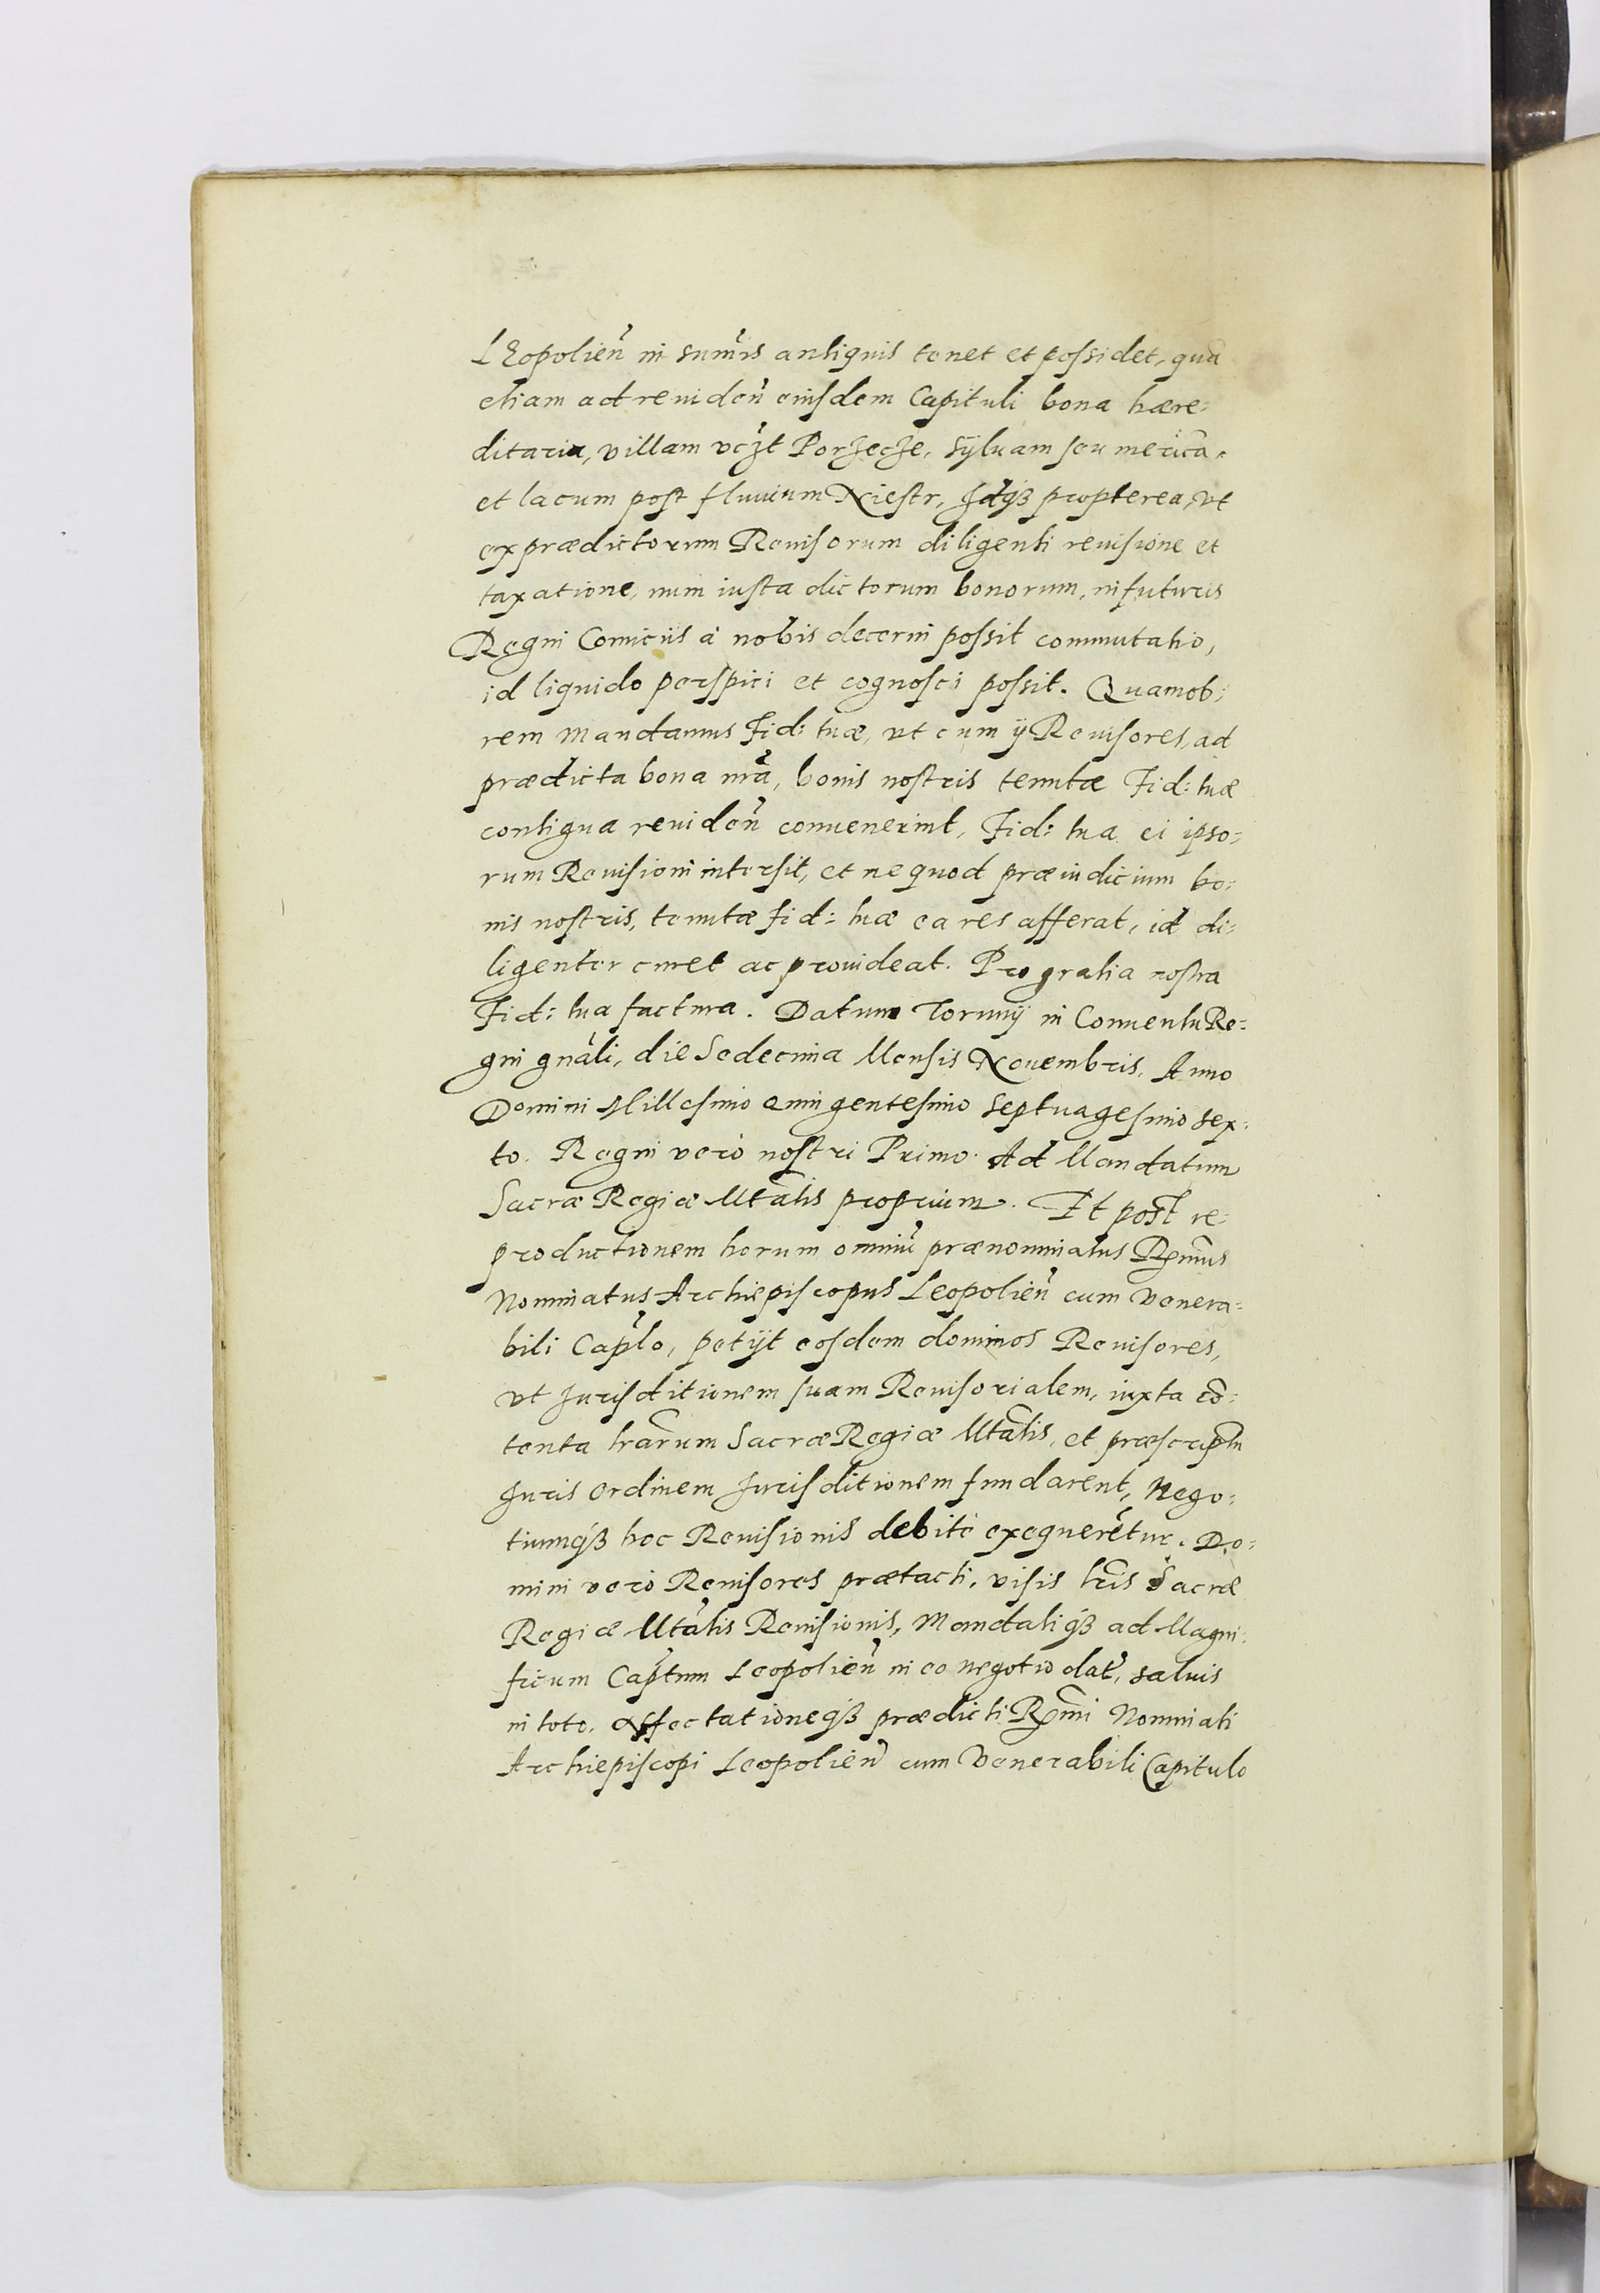 LEopolien̄ in sum̄is antiquis tenet et possidet, quā
etiam ad reuiden̄ eiusdem Capituli bona hære-
ditaria, villam vczt Porzecze, syluam seu mericā,
et lacum post fluuium Niestr, Idq3 propterea, vt
ex prædictorum Reuisorum diligenti reuisione et
taxatione, num iusta dictorum bonorum, in futuris
Regni Comiciis à nobis decerni possit commutatio,
id liquido perspici et cognosci possit. Quamob:
rem mandamus Fid: tuæ, vt cum ij Reuisores, ad
prædicta bona nrā, bonis nostris tenutæ Fid: tuæ
contigua reuiden̄ conuenerint, Fid: tua ei ipso-
rum Reuisioni intersit, et ne quod præiudicium bo:
nis nostris, tenutæ fid: tuæ ea res afferat, id di:
ligenter curet ac prouideat. Pro gratia nostra
Fid: tua factura. Datum Torunij in Conuentu Re-
gni gnāli, die Sedecima Mensis Nouembris. Anno
Domini Millesimo Quingentesimo Septuagesimo sex:
to. Regni verò nostri Primo. Ad Mandatum
Sacræ Regiæ Mtātis proprium. Et post re-
productionem horum omniū prænominatus Rm̄us
Nominatus Archiepiscopus Leopolien̄ cum Venera-
bili Caplo, petijt eosdem dominos Reuisores,
vt Jurisditionem suam Reuisorialem, iuxta cō-
tenta lrārum Sacræ Regiæ Mtātis, et præscriptū
Juris ordinem Jurisditionem fundarent, Nego-
tiumq3 hoc Reuisionis debitè exequerētur. Do-
mini verò Reuisores prætacti, visis lrīs Sacræ
Regiæ Mtātis Reuisionis, Mandatiq3 ad Magni:
ficum Captum Leopolien̄ in eo negotio dat̄, saluis
in toto. Affectationeq3 prædicti Rm̄i Nominati
Archiepiscopi Leopolien̄ cum Venerabili Capitulo